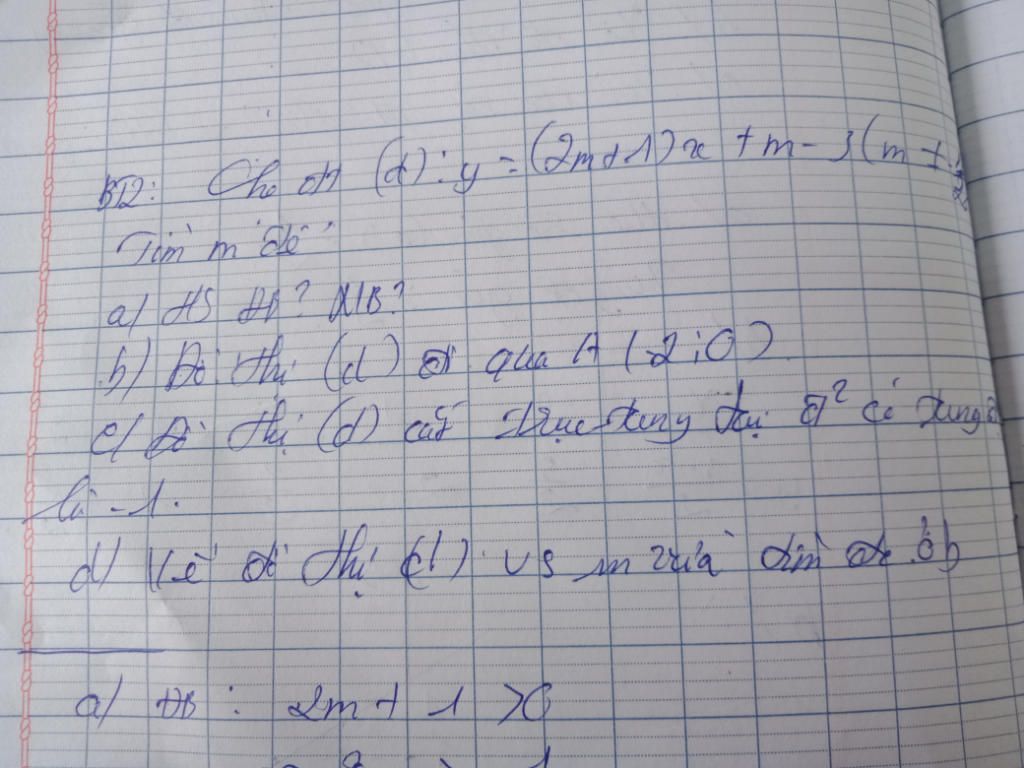 BT2: Cho đt (d): y = (2m+1)x + m - 3 (m ≠
Tìm m để
a) HS ĐB? NB?
b) Đồ thị (d) đi qua A (-2;0)
c) Đồ thị (d) cắt trục tung tại đ² có tung đ
là -1.
d) Vẽ đồ thị (d) vs m vừa tìm đc ở b
a) ĐB : 2m + 1 > 0